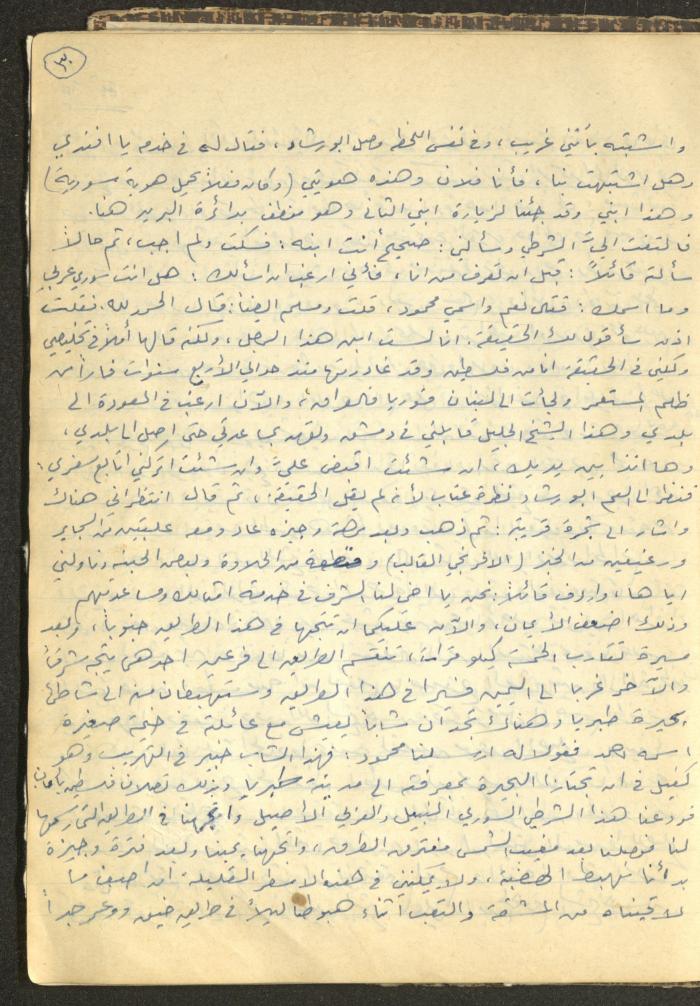 ٣٠
واشتبه بأنني غريب، وفي نفس اللحظة وصل ابو رشاد، فقال له في خدمه يا افندي
وهل اشتبهت بنا، فأنا فلان وهذه هويتي (وكان فعلاً يحمل هوية سورية)
وهذا ابني وقد جئنا لزيارة ابني الثاني وهو موظف بدائرة البريد هنا.
فالتفت اليّ الشرطي وسألني: صحيح أنت ابنه؟ فسكت ولم اجب، ثم حالاً
سألته قائلاً: قبل ان تعرف من انا، فأني ارغب ان اسألك: هل انت سوري عربي
وما اسمك: فقال نعم واسمي محمود، قلت ومسلم ايضاً: قال الحمد لله. فقلت
اذن سأقول لك الحقيقة. انا لست ابن هذا الرجل، ولكنه قالها أملاً في تخليصي
ولكني في الحقيقة انا من فلسطين وقد غادرتها منذ حوالي الأربع سنوات فاراً من
ظلم المستعمر ولجأت الى لبنان فسوريا فالعراق، والآن ارغب في العودة الى
بلدي وهذا الشيخ الجليل قابلني في دمشق وتعهد بمساعدتي حتى اصل الى بلدي،
وها انذا بين يديك، ان شئت اقبض عليّ وان شئت اتركني اتابع سفري؛
فنظر الى العم ابو رشاد نظرة عتاب لأنه لم يقل الحقيقة، ثم قال انتظراني هناك
واشار الى شجرة قريبة: ثم ذهب وبعد برهة وجيزه عاد ومعه علبتين من السجاير
ورغيفين من الخبز (الافرنجي القالب) وقطعة من الحلاوة وبعض الجبنه وناولني
اياها، واردف قائلاً: نحن يا اخي لنا الشرف في خدمة امثالك ومساعدتهم
وذلك اضعف الأيمان، والآن عليكما ان تتجها في هذا الطريق جنوباً، وبعد
مسيرة تقارب الخمسة كيلو مترات، تنقسم الطريق الى فرعين احدهما يتجه شرقاً
والآخر غربا الى اليمين فسيرا في هذا الطريق وستهبطان منه الى شاطئ
بحيرة طبريا وهناك تجدان شاباً يعيش مع عائلته في خيمة صغيرة
اسمه احمد فقولا له ارسلنا محمود: فهذا الشاب خبير في التهريب وهو
كفيل في ان تجتازا البحيرة بمعرفته الى مدينة طبريا وبذلك تصلان فلسطين بأمان
فودعنا هذا الشرطي السوري النبيل والعربي الأصيل واتجهنا في الطريق التي رسمها
لنا فوصلنا بعد مغيب الشمس مفترق الطرق، واتجهنا يمينا وبعد فترة وجيزة
بدأنا نهبط الهضبة، ولا يمكنني في هذه الاسطر القليلة ان اصف ما
لاقيناه من المشقة والتعب اثناء هبوطنا ليلاً في طريق ضيق ووعر جداً